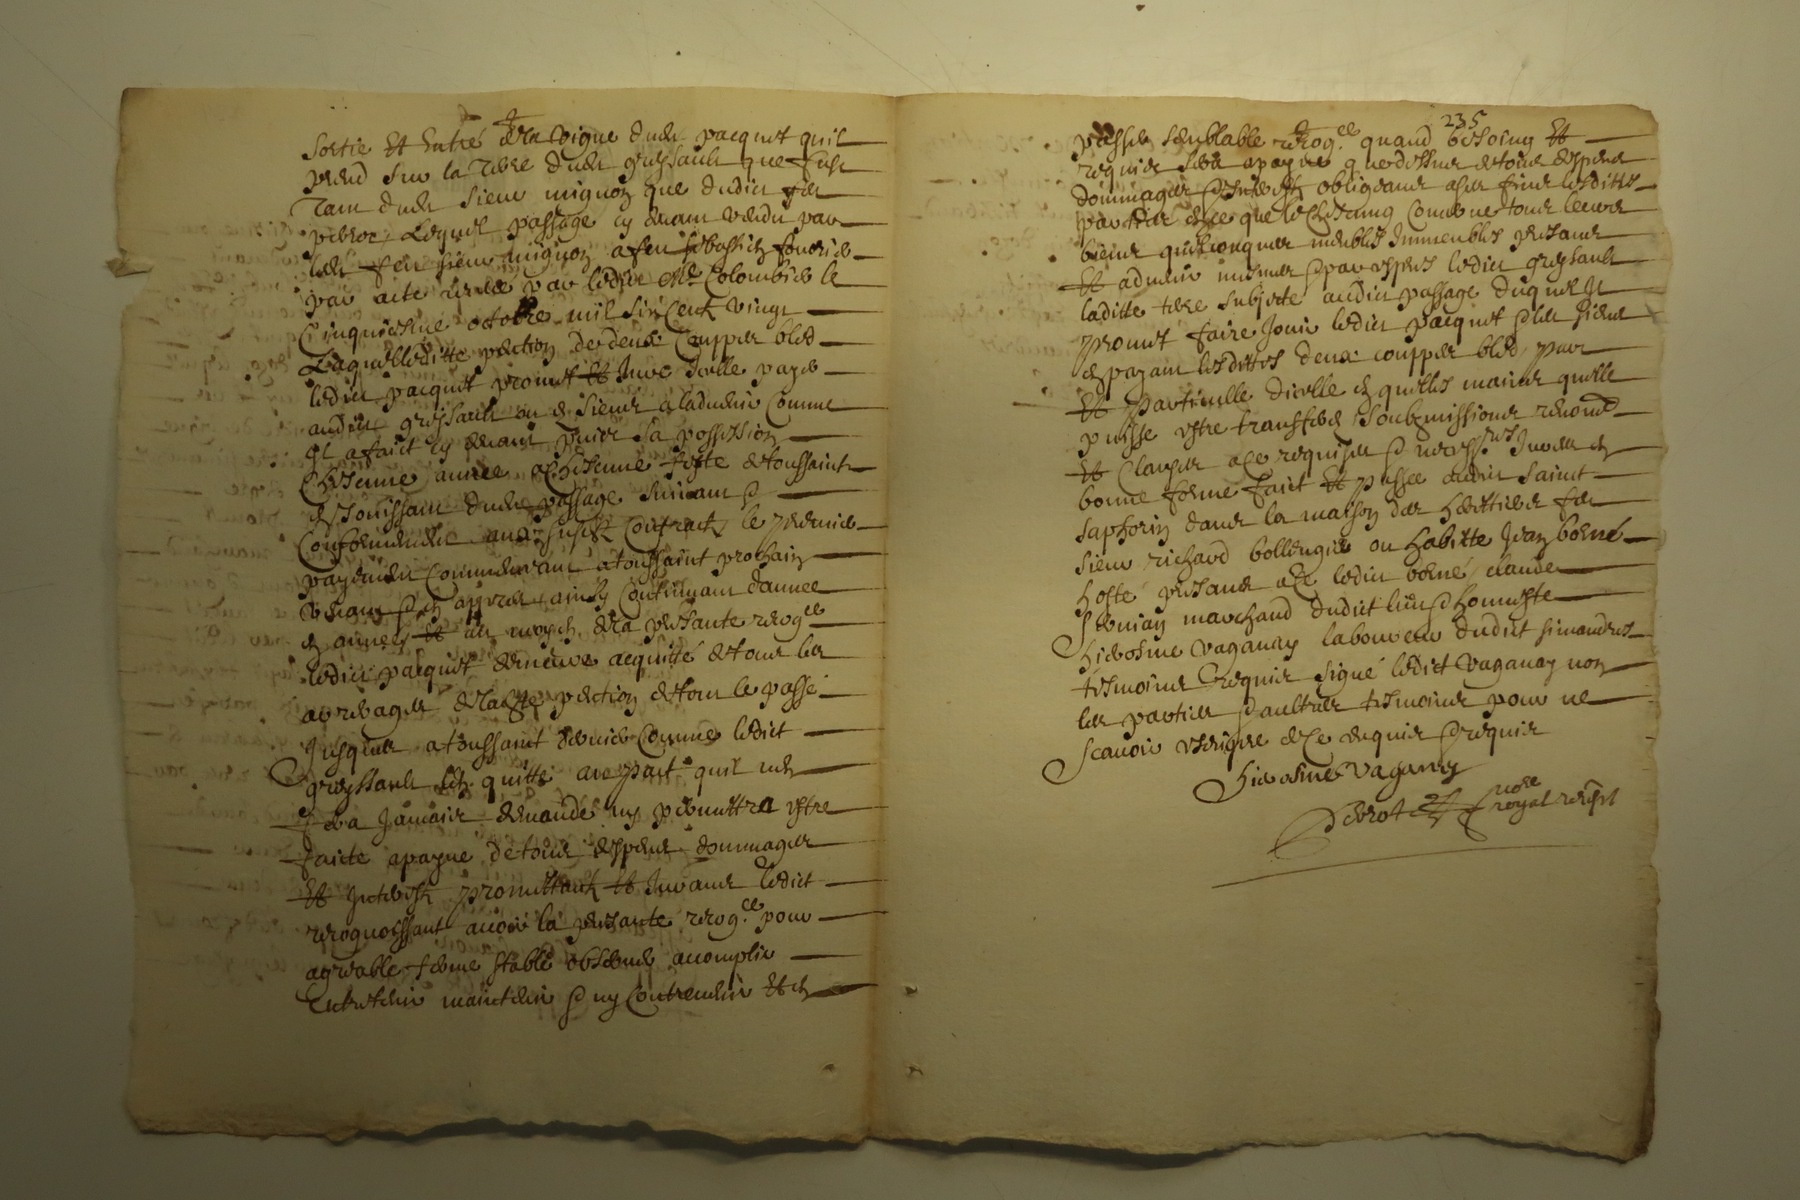 sortie et entré de la vigne dudit pacquet quil
prend sur la terre dudit greysault que fust
tant dudit sieur mignoz que dudict
lequel passage cy devant vendu par
ledit feu sieur mignoz a feu sebastien
par acte receu par ledict Me Colombier le
Cinquiesme octobre mil six Cent vingt
Laquelle ditte pention de deux Couppes bled
ledict pacquet promet et Jure Icelle payer
audict greysault ou es siens a ladvenir Comme
Il a faict cy devant puis sa possession
Chascune annee a Chascune feste de toussaint
en Jouissant dudit passage suivant &
Conformement aux susdit Contract le premier
payement Commencant a toussaint prochain
venant & en appres ainsy Continuant dannee
en annee et au moyen de la presante recogce
ledict pacquet demeure acquitté de tous les
arrerages de la pention de tout le passé
Jusques a toussaint dernier Comme ledict
greyssault len quitte avec pact quil nen
sera Jamais demandé ny permettra estre
faicte a payne de tous despens dommages
et Interestz promettant et Jurant ledict
recognoissant avoir la presante recogce pour
agreable ferme stable observer accomplir
Entretenir maintenir & ny Contrevenir et en
235
passer semblable recogce quand besoing et
requis sera a payne que dessus de tous despens
dommages & Interestz obligeant a ses fins lesdittes
parties en ce que le Chascung Concerne tous leurs
biens quelconques meubles Immeubles presans
et advenir mesmes & par expres ledict greysault
laditte terre subjecte audict passage duquel Il
promet faire Jouir ledict pacquet & les siens
en payant lesdittes deux couppes bled par
et particulle dicelle en quelles mains quelle
puisse estre transferee soubzmissions renonc
et clauses a ce requises & necessres Jurees en
bonne forme faict et passee audict saint
saphorin dans la maison des herittiers feu
sieur richard bollengier ou habitte Jean borné
hoste presans a ce ledict borné claude
marchand dudict lieu & honneste
hierosme vaganay laboureur dudict simandres
tesmoins requis signé ledict vaganay non
les parties & aultres tesmoins pour ne
scavoir escripre de ce enquis & requis
hierosme vaganay
Perrot nore royal recept